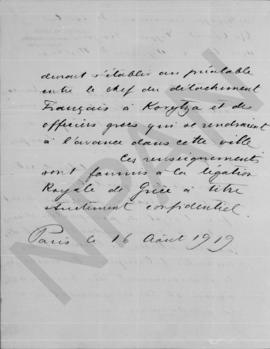 devrait s'établir au préalable
entre le chef du détachement
Français à Korytza et des
officiers grecs qui se rendraient
à l'avance dans cette ville
Ces renseignements
sont fournis à la légation
Royale de Grèce à titre
strictement confidentiel.
Paris le 16 Août 1919